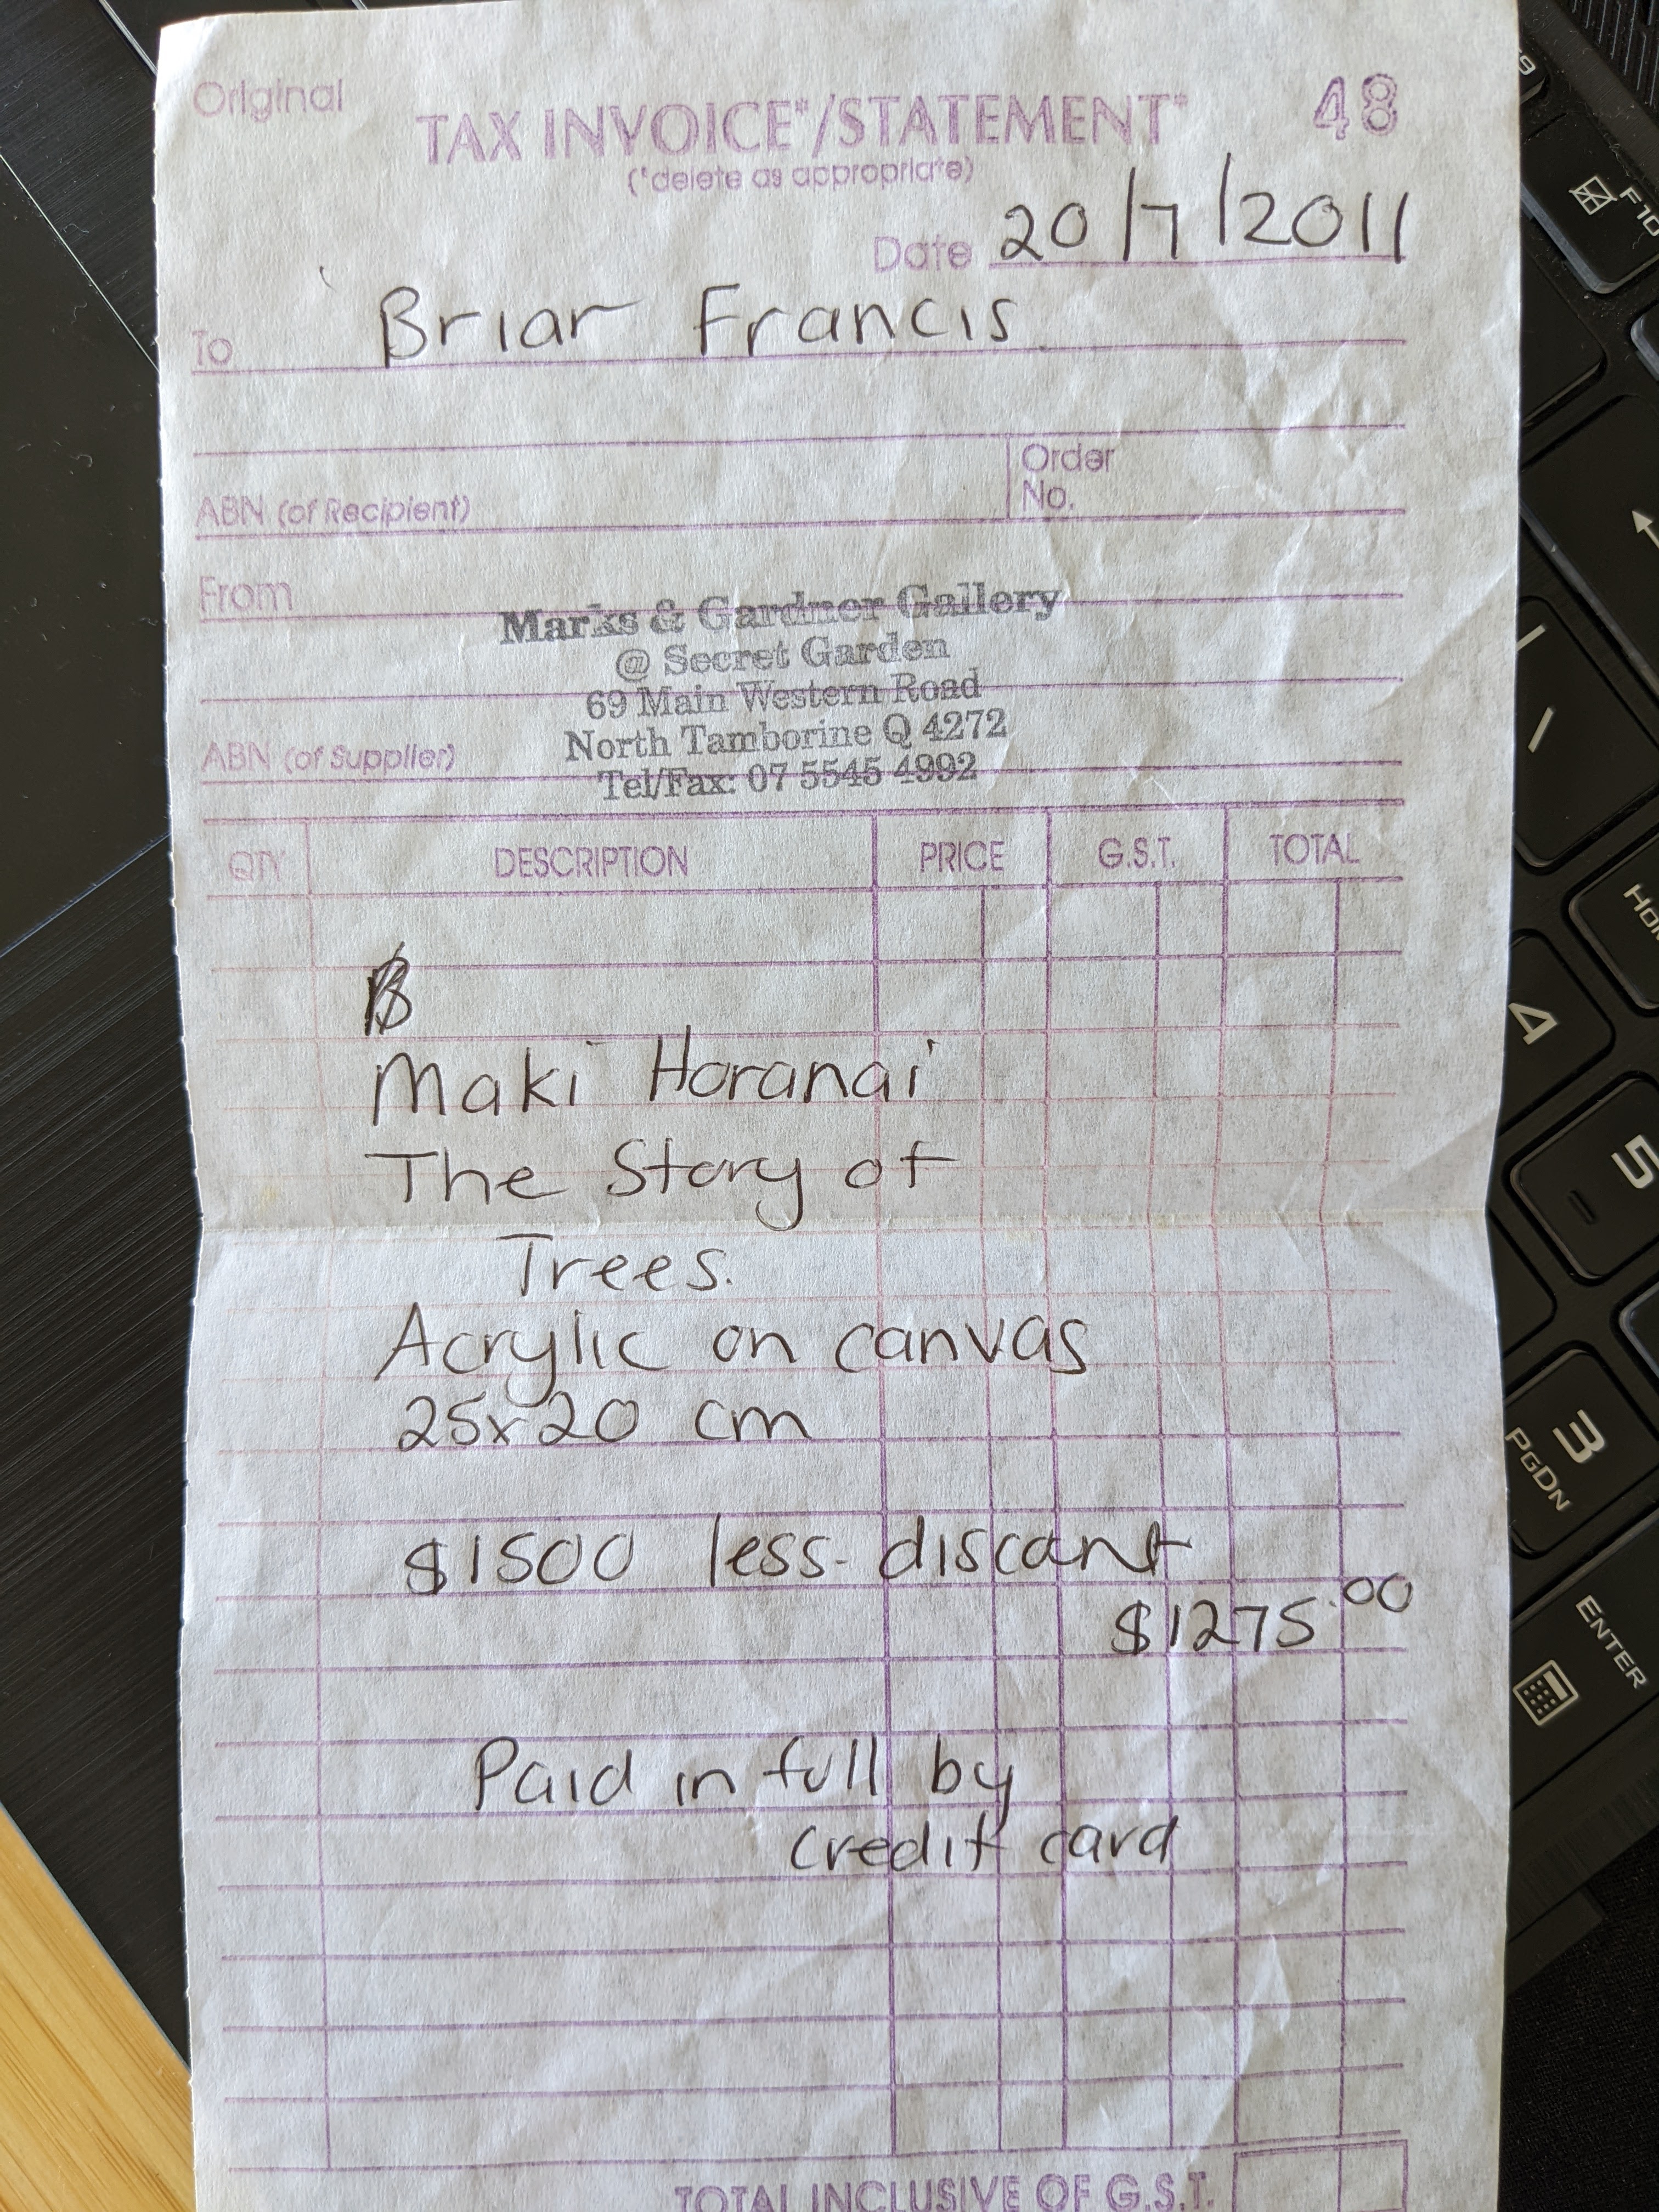 Original
TAX INVOICE*/STATEMENT* 48
(*delete as appropriate)
Date 20/7/2011
To Briar Francis
Order
No.
ABN (of Recipient)
From
Marks & Gardner Gallery
@ Secret Garden
69 Main Western Road
North Tamborine Q 4272
ABN (of Supplier)
Tel/Fax: 07 5545 4992
QTY DESCRIPTION PRICE G.S.T. TOTAL
Maki Horanai
The Story of
Trees.
Acrylic on canvas
25x20 cm
$1500 less discant
$1275.00
Paid in full by
credit card
TOTAL INCLUSIVE OF G.S.T.
F9
F10
Home
4
5
3
PgDn
ENTER